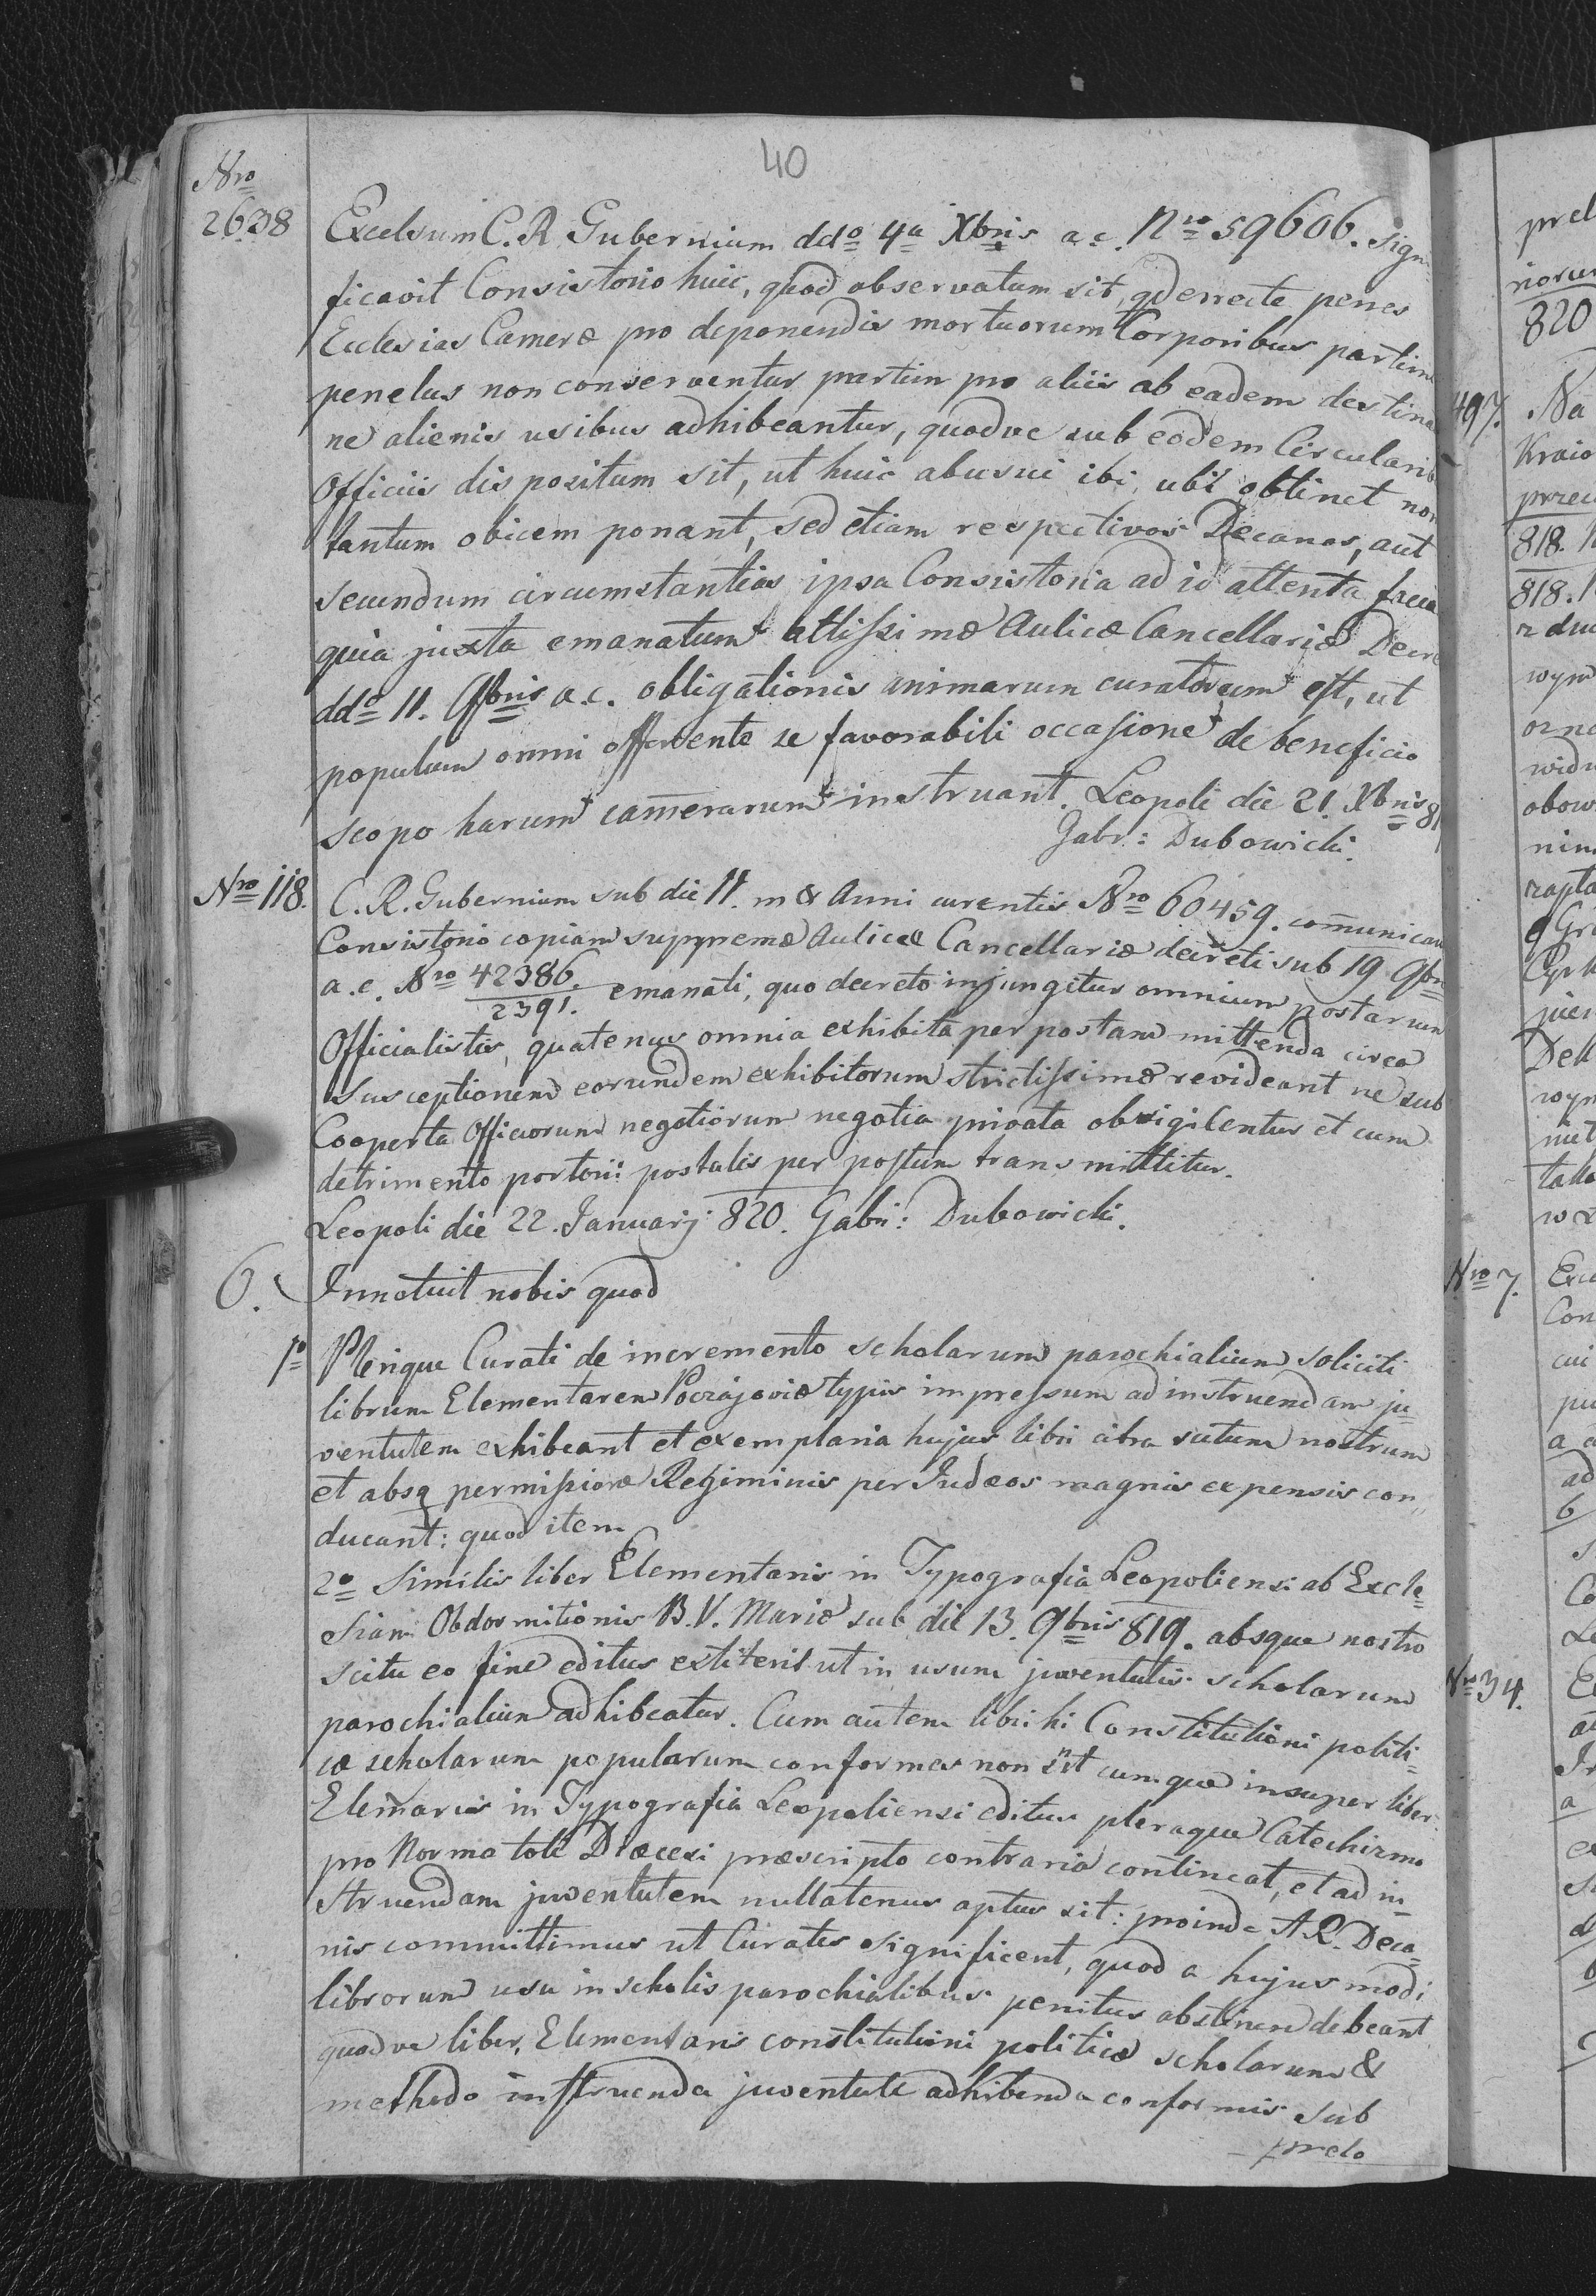 40
Nro
2638
Excelsum C. R. Gubernium ddo 4a Xbris a. c. Nro 59606. signi
ficavit Consistorio huic, quod observatum sit, qd erecte penes
Ecclesias Cameræ pro deponendis mortuorum Corporibus partim
penelus non conserventur partim pro aliis ab eadem destina
ne alienis usibus adhibeantur, quodve sub eodem Circularib
Officiis dispositum sit, ut huic abusui ibi, ubi obtinet non
tantum obicem ponant, sed etiam respectivos Decanos, aut
secundum circumstantias ipsa Consistoria ad id attenta facia
quia juxta emanatum altissimæ Aulicæ Cancellariæ Decre
ddo 11. 9bris a. c. obligationis animarum curatorum est, ut
populum omni offerente se favorabili occasione de beneficio
scopo harum camerarum instruant. Leopoli die 21. Xbris 81
Gabr: Dubowicki.
Nro 118.
C. R. Gubernium sub die 11. m & Anni curentis Nro 60459. comunicav
Consistorio copiam suppremæ Aulicæ Cancellariæ decreti sub 19 9bris
a. c. Nro 42386.
2391. emanati, quo decreto injungitur omnium postarum
Officialistis, quatenus omnia exhibita per postam mittenda circa
susceptionem eorundem exhibitorum strictissimæ revideant ne sub
Cooperta Officiorum negotiorum negotia privata obsigilentur et cum
detrimento portorii postalis per postum transmittitur.
Leopoli die 22. Januarj 820. Gabri: Dubowicki.
6. Innotuit nobis quod
1o Plerique Curati de incremento scholarum parochialium soliciti
librum Elementarem Poczajoviæ typis impressum ad instruendam ju=
ventutem exhibeant et exemplaria hujus libri citra scitum nostrum
et absq permissione Regiminis per Judæos magnis expensis con„
ducant: quod item
2o Similis liber Elementaris in Typografia Leopoliensi ab Eccle=
siam Obdormitionis B. V. Mariæ sub die 13. 9bris 819. absque nostro
scitu eo fine editus extiterit ut in usum juventutis scholarum
parochialium adhibeatur. Cum autem libri hi Constitutioni politi=
cæ scholarum popularum conformes non snt cumque insuper liber
Elemaris in Typografia Leopoliensi editus pleraque Catechismo
pro Norma toti Diæcesi præscripto contraria contineat, et ad in=
struendam juventutem nullatenus aptus sit: proinde A. R. Deca=
nis committimus ut Curatis significent, quod a hujus modi
librorum usu in scholis parochialibus penitus abstinere debeant
quodve liber Elementaris constitutioni politicæ scholarum &
methodo instruenda juventute adhibenda conformis sub
prelo
prel
norum
820
497. Na
Kraio
przez
818. N
818.
wym
widu
obow
Gr
Cyrk
Dek
wym
Nro 7.
Con
cui
pu
ad
b
Nro 34.
Co
a